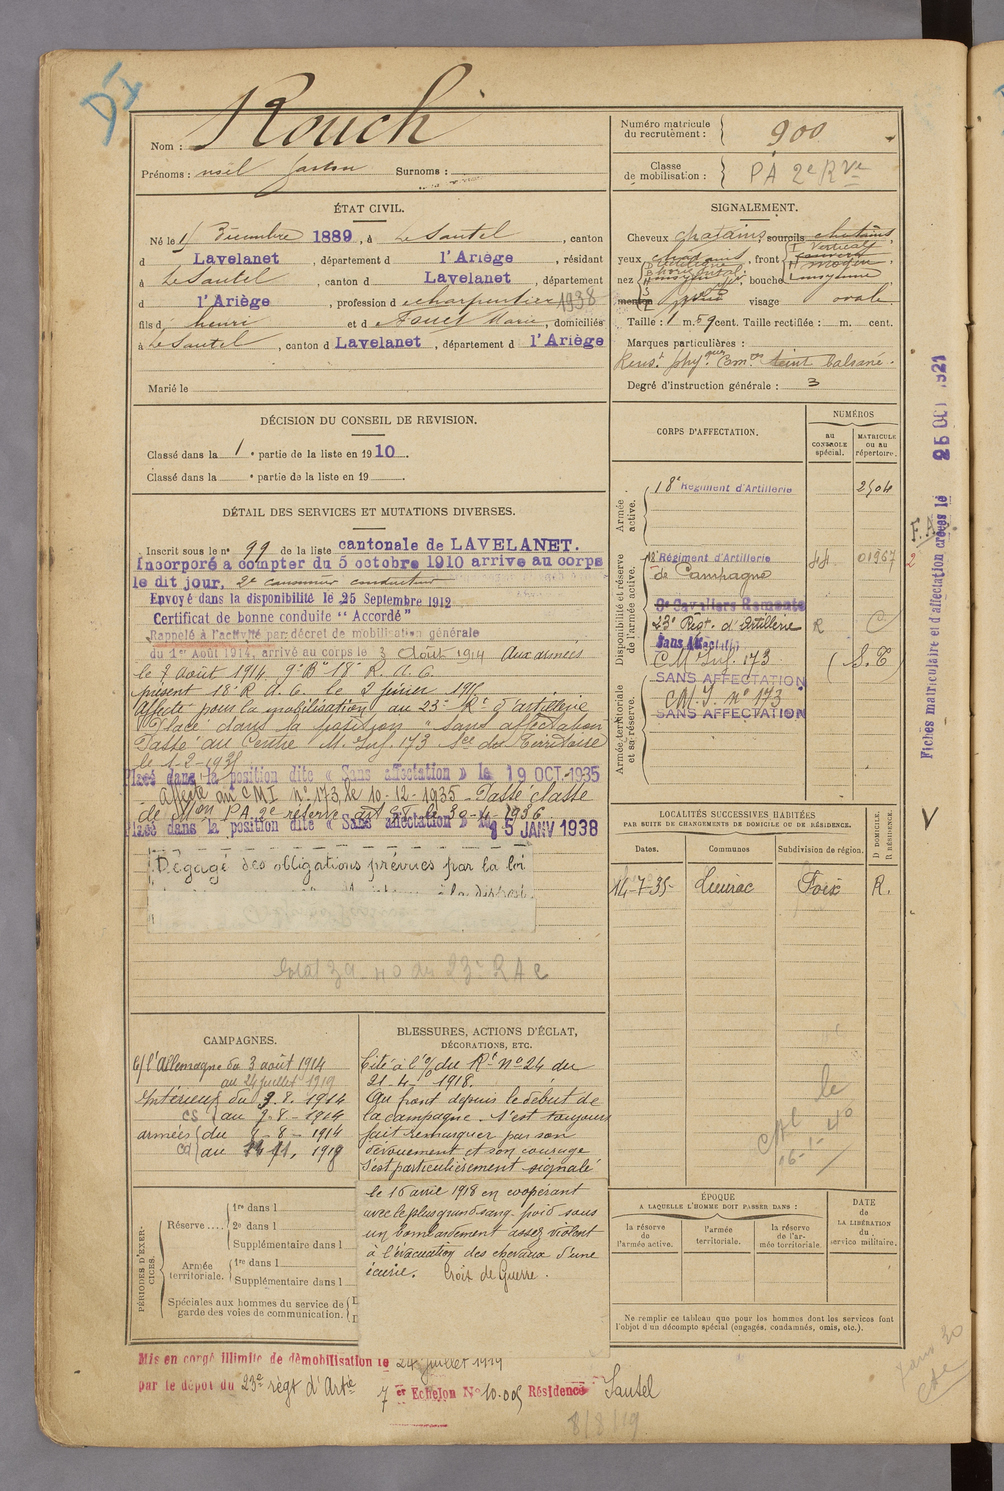 Rouch
Nom :
Prénoms : noël gaston Surnoms :
Numéro matricule du recrutement : 900
Classe de mobilisation : PA 2e R Ve
ÉTAT CIVIL.
Né le Décembre 1889, à Le Sautel, canton
d Lavelanet, département d l'Ariège, résidant
à Le Sautel, canton d Lavelanet, département
d l'Ariège, profession d charpentier 1938
fils d henri et d Marie, domiciliés
à Le Sautel, canton d Lavelanet, département d l'Ariège
Marié le
SIGNALEMENT.
Cheveux chatains, sourcils chatains,
yeux, front Vertical
nez, bouche moyenne
menton visage ovale.
Taille : 1 m. 59 cent. Taille rectifiée : m. cent.
Marques particulières :
Rens.t phy.ques Com.res teint balsané.
Degré d'instruction générale : 3
DÉCISION DU CONSEIL DE REVISION.
Classé dans la 1 e partie de la liste en 1910.
Classé dans la e partie de la liste en 19
DÉTAIL DES SERVICES ET MUTATIONS DIVERSES.
Inscrit sous le no 99 de la liste cantonale de LAVELANET.
Incorporé a compter du 5 octobre 1910 arrive au corps
le dit jour. 2e canonnier conducteur
Envoyé dans la disponibilité le 25 Septembre 1912
Certificat de bonne conduite "Accordé"
Rappelé à l'activité par décret de mobilisation générale
du 1er Août 1914, arrivé au corps le 3 Août 1914 Aux armées
le 8 août 1914 9e Bie 18e R. A. C.
présent 18e R. A. C. le 2 février
Affecté pour la mobilisation au 23e Rt d'artillerie
Placé dans la position "sans affectation"
Passé au Centre M. Inf. 173 Ser des Territoire
le 1-2-193
Placé dans la position dite « Sans affectation » le 19 OCT. 1935
Affecté au CMI no 173 le 10-12-1935. Passé classe
de Mon P.A. 2e réserve le 30-4-1936
Placé dans la position dite « Sans affectation » le 15 JANV 1938
Dégagé des obligations prévues par la loi
23e RAC
CORPS D'AFFECTATION.
NUMÉROS
au CONTROLE spécial.
MATRICULE ou au répertoire.
Armée active.
18e Régiment d'Artillerie 2504
Disponibilité et réserve de l'armée active.
18e Régiment d'Artillerie 44 01967
de Campagne
9e Cavaliers Remonte
23e Régt. d'Artillerie R C
Sans Affectation
CM Inf. 173 (S.T)
Armée territoriale et sa réserve.
SANS AFFECTATION
CM.I. no 173
SANS AFFECTATION
Fiches matriculaire et d'affectation créées le 25 OCT 1921
LOCALITÉS SUCCESSIVES HABITÉES
PAR SUITE DE CHANGEMENTS DE DOMICILE OU DE RÉSIDENCE.
Dates. Communes Subdivision de région. D DOMICILE. R RÉSIDENCE.
14-7-35- Lieurac Foix R.
le
16-1-40
CAMPAGNES.
C/ l'Allemagne du 3 août 1914
au 24 juillet 1919
Intérieur du 3.8.1914
CS au 7-8-1914
armées du 8-8-1914
CD au 11, 1918
BLESSURES, ACTIONS D'ÉCLAT,
DÉCORATIONS, ETC.
Cité à l'o/ du Rt no 24 du
21-4-1918.
Au front depuis le début de
la campagne. S'est toujours
fait remarquer par son
dévouement et son courage
S'est particulièrement signalé
le 16 avril 1918 en coopérant
avec le plus grand sang-froid sous
un bombardement assez violent
à l'évacuation des chevaux d'une
écurie. Croix de Guerre.
PÉRIODES D'EXERCICES.
Réserve ....
1re dans l
2e dans l
Supplémentaire dans l
Armée territoriale.
1re dans l
Supplémentaire dans l
Spéciales aux hommes du service de garde des voies de communication.
ÉPOQUE
A LAQUELLE L'HOMME DOIT PASSER DANS :
la réserve de l'armée active.
l'armée territoriale.
la réserve de l'armée territoriale.
DATE DE LA LIBÉRATION du service militaire.
Ne remplir ce tableau que pour les hommes dont les services font
l'objet d'un décompte spécial (engagés, condamnés, omis, etc.).
Mis en congé illimité de démobilisation le 24 juillet 1919
par le dépôt du 23e régt d'Artie 7 er Echelon No 10.005 Résidence Sautel
8/8/19